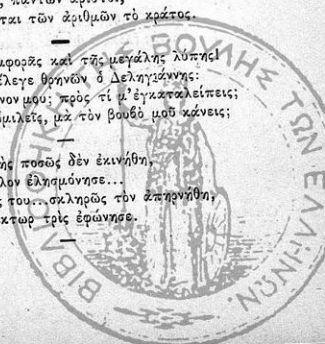 ται τῶν ἀριθμῶν τὸ κράτος.
μφορᾶς καὶ τῆς μεγάλης λύπης!
ἔλεγε θρηνῶν ὁ Δεληγιάννης:
νον μου; πρὸς τί μ' ἐγκαταλείπεις;
ὁμιλεῖς, μὰ τὸν βουβὸ μοῦ κάνεις;
ῆς ποσῶς δὲν ἐκινήθη,
λον ἐλησμόνησε...
ς του... σκληρῶς τὸν ἀπηρνήθη,
κτωρ τρὶς ἐφώνησε.
ΒΙΒΛΙΟΘΗΚΗ ΤΗΣ ΒΟΥΛΗΣ ΤΩΝ ΕΛΛΗΝΩΝ